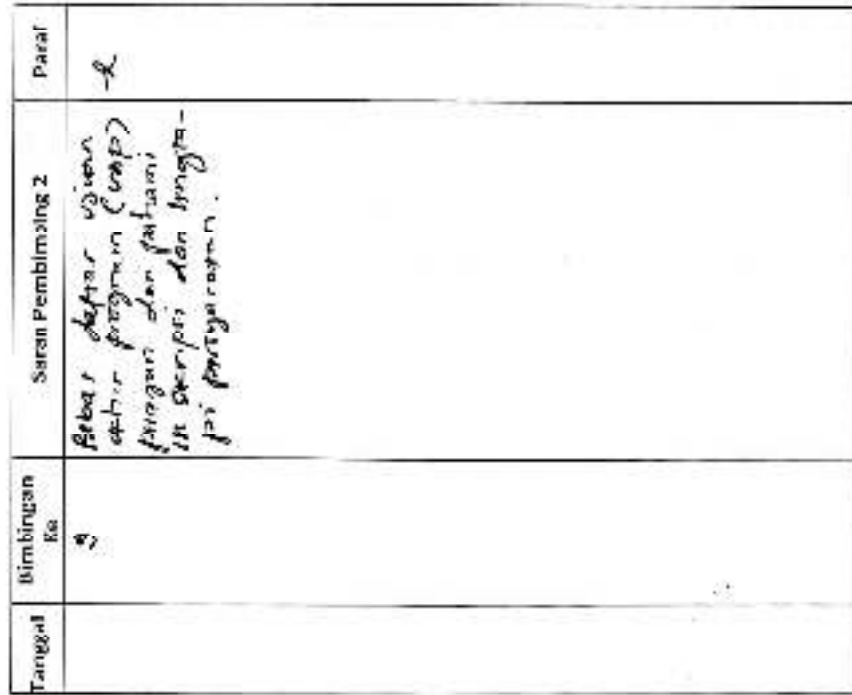 Tanggal
Bimbingan
Ke
Saran Pembimbing 2
Paraf
daftar ujian
akhir program (UAP)
dan pahami
isi skripsi dan
persyaratan.